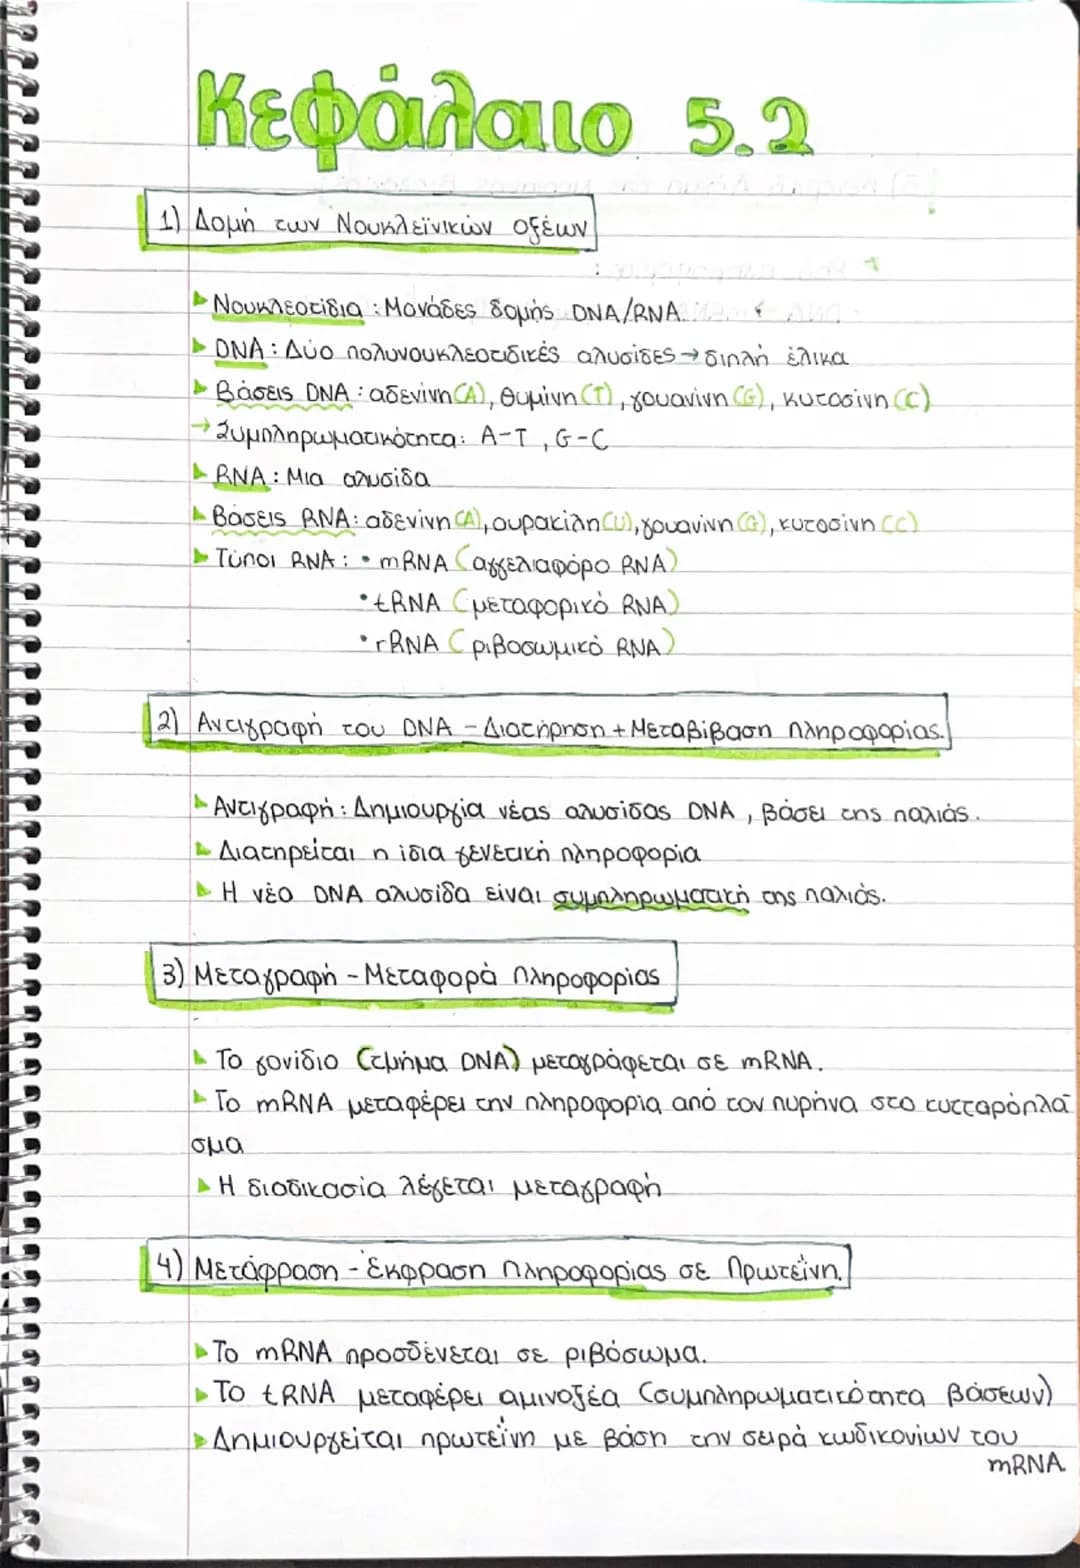 Κεφάλαιο 5.2
1) Δομή των Νουκλεϊνικών οξέων
Νουκλεοτίδια : Μονάδες δομής DNA/RNA.
DNA : Δύο πολυνουκλεοτιδικές αλυσίδες → διπλή έλικα
Βάσεις DNA : αδενίνη (A), θυμίνη (T), γουανίνη (G), κυτοσίνη (C)
→ Συμπληρωματικότητα: A-T , G-C
RNA : Μια αλυσίδα
Βάσεις RNA: αδενίνη (A), ουρακίλη (U), γουανίνη (G), κυτοσίνη (C)
Τύποι RNA : • mRNA (αγγελιαφόρο RNA)
• tRNA (μεταφορικό RNA)
• rRNA (ριβοσωμικό RNA)
2) Αντιγραφή του DNA - Διατήρηση + Μεταβίβαση πληροφορίας.
Αντιγραφή : Δημιουργία νέας αλυσίδας DNA , βάσει της παλιάς.
Διατηρείται η ίδια γενετική πληροφορία
Η νέα DNA αλυσίδα είναι συμπληρωματική της παλιάς.
3) Μεταγραφή - Μεταφορά πληροφορίας
Το γονίδιο (τμήμα DNA) μεταγράφεται σε mRNA.
Το mRNA μεταφέρει την πληροφορία από τον πυρήνα στο κυτταρόπλα-
σμα
Η διαδικασία λέγεται μεταγραφή
4) Μετάφραση - Έκφραση πληροφορίας σε Πρωτεΐνη.
Το mRNA προσδένεται σε ριβόσωμα.
Το tRNA μεταφέρει αμινοξέα (συμπληρωματικότητα βάσεων)
Δημιουργείται πρωτεΐνη με βάση την σειρά κωδικονίων του
mRNA